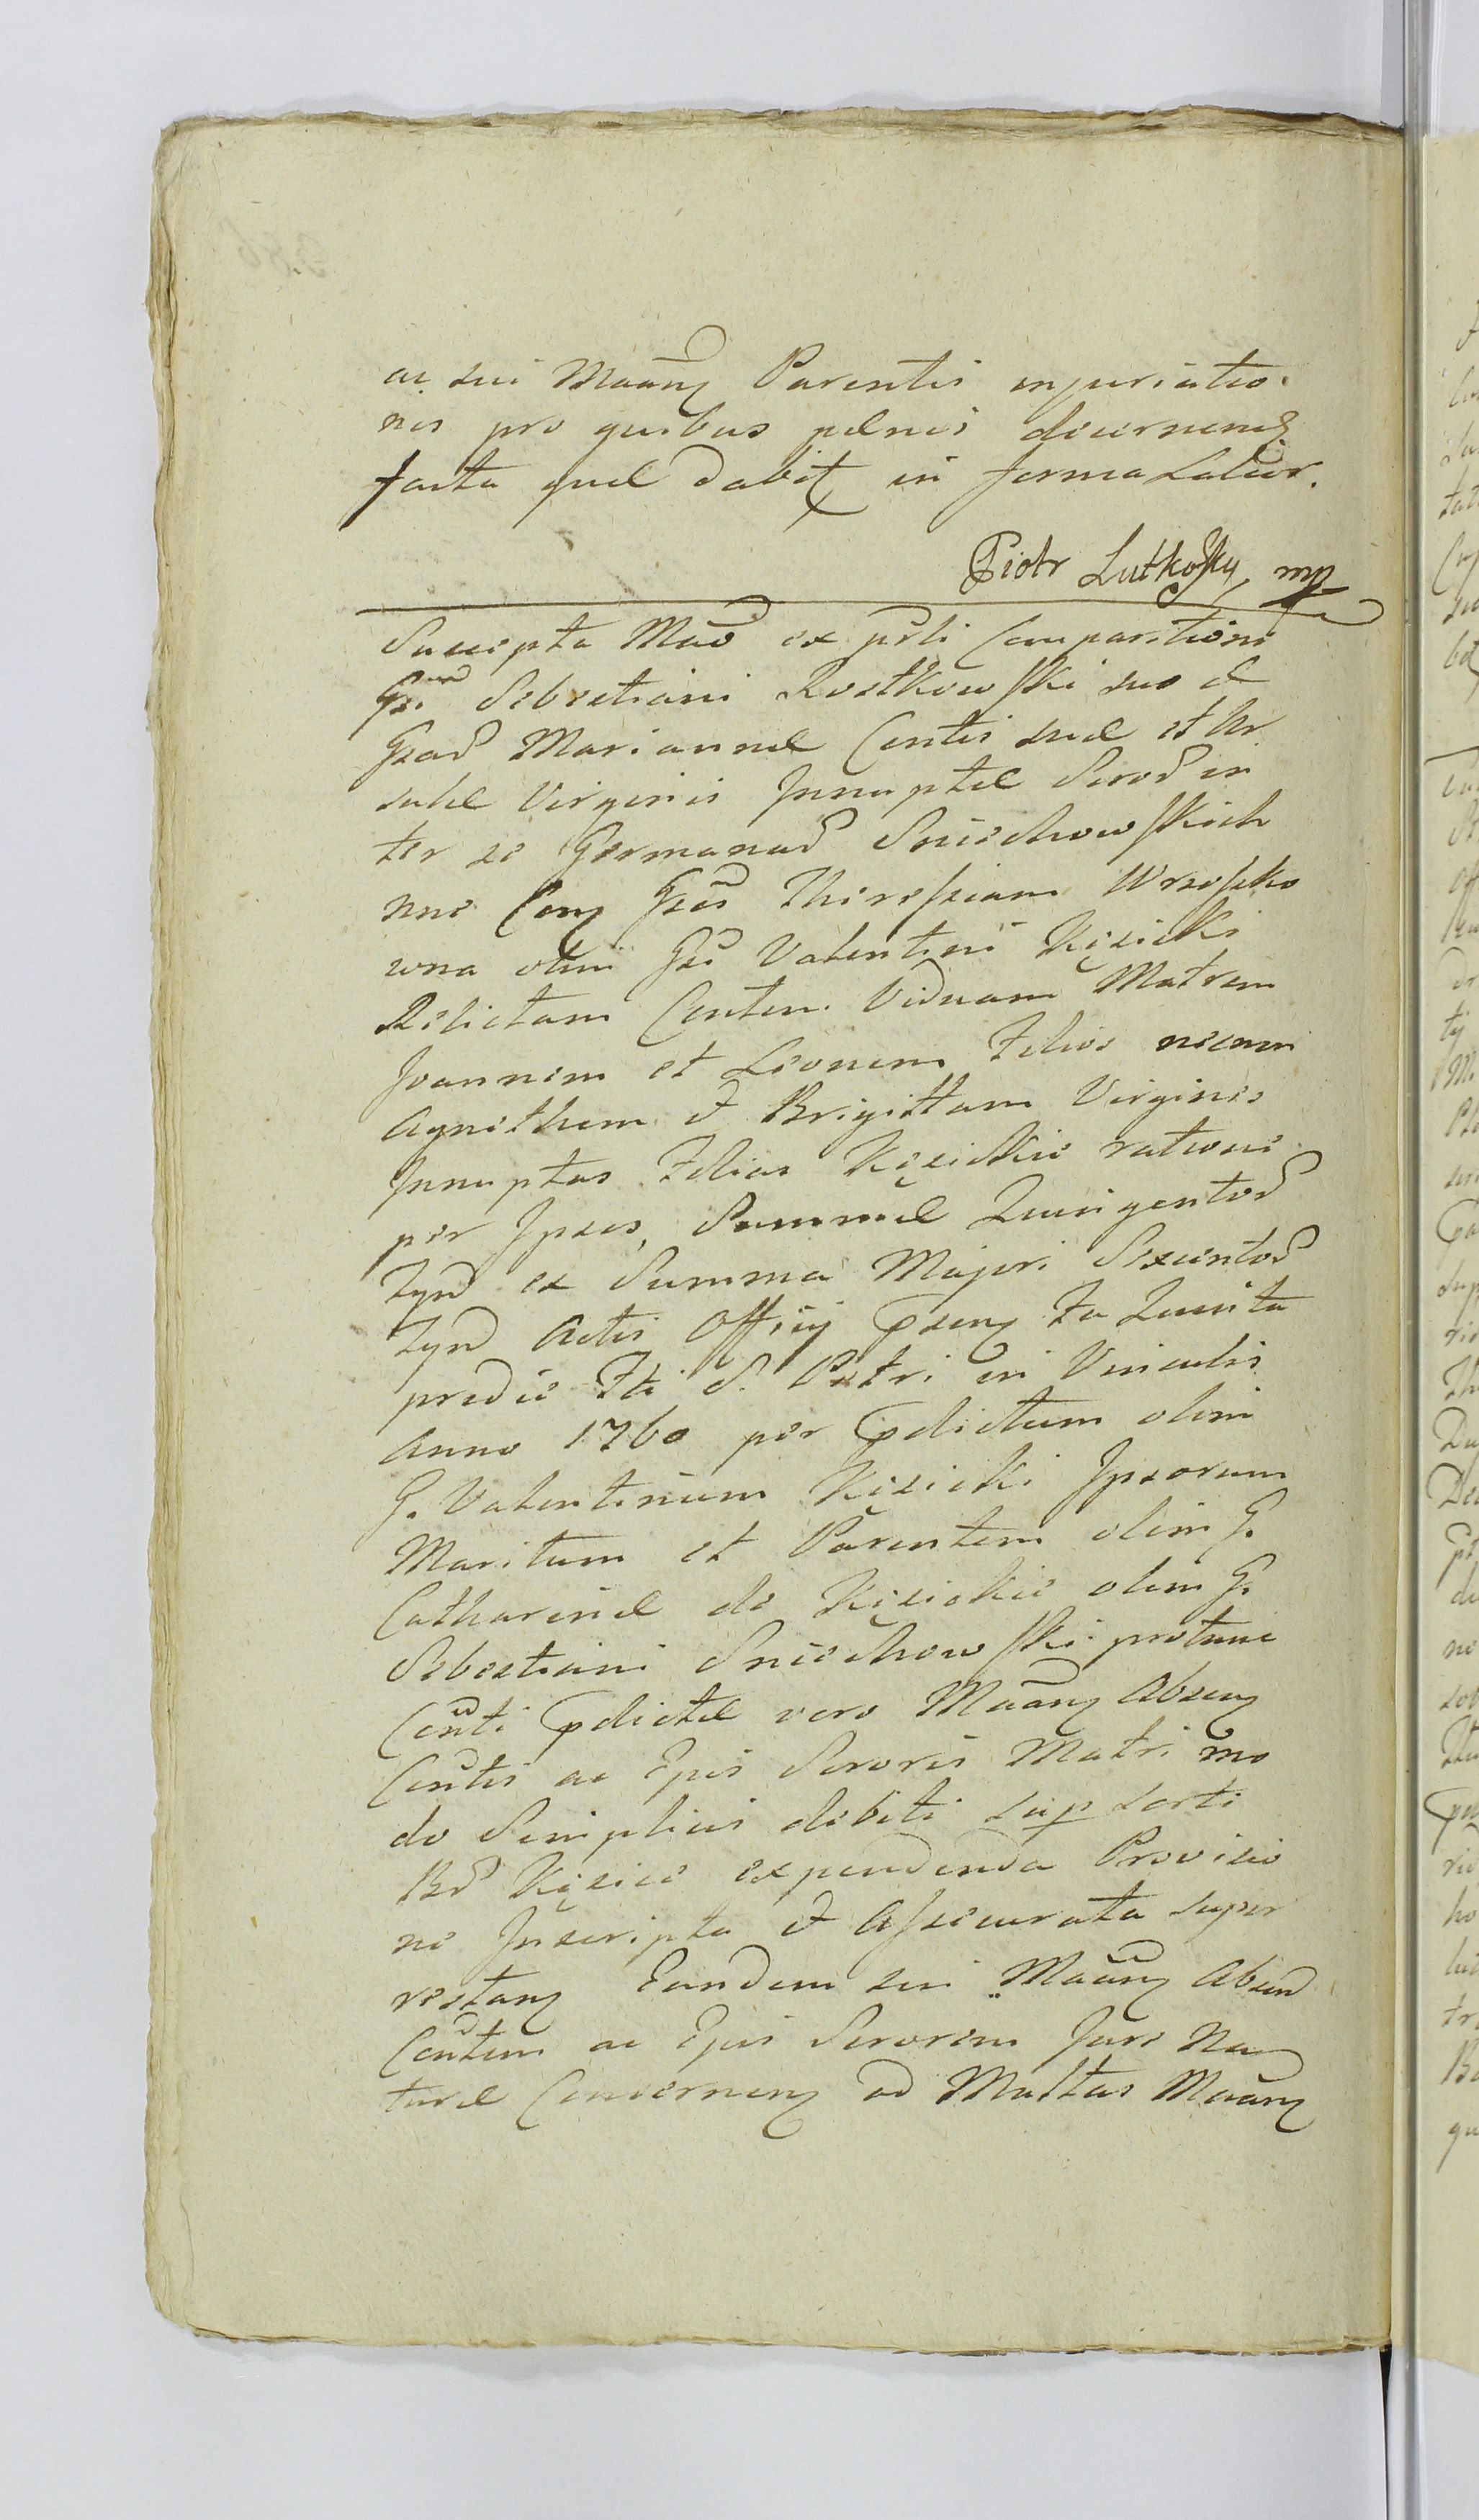 ac sui Maãnɜ Parentis injuriatio:
nis pro quibus pœnis decernend
facta quæ dabit in forma Latior.
Piotr Lutkosky mp
Suscepta Mãõ ex psli Comparitione
Gsi Sebestiani Rostkowski suo &
Gsaɜ Mariannæ Contis suæ et Ur
sulæ Virginis Jnnuptæ Soroɜ in
ter se Germanaɜ Sniechowskich
nne Conɜ Gsãɜ Theressiam Wrzosko
wna olim Gsi Valentini Kęsicki
Relictam Conten. Viduam Matrem
Joannem et Leonem Filios necnon
Agnethem & Brigittam Virgines
Jnnuptas Filias Kęsickie ratione
per Jpsos, Summæ Quingentoɜ
flɜ ex Summa Majori Sexcentoɜ
flɜ Actis Officij psenɜ Fa Quinta
pridie Fti S. Petri in Vinculis
Anno 1760 per pdictum olim
G. Valentinum Kęsicki Jpsorum
Maritum et Parentem olim G.
Catharinæ de Kęsickie olim G.
Sebestiani Sniechowski protunc
Conti pdictæ vero Maãnɜ Absenɜ
Contis ac Ejus Sororis Matri mo
do Simplicis debiti sup sorte
Bɜ Kęsice expendenda Provisio
ne Jnscripta & Assecurata super
restanɜ Eandem sui Maãnɜ Absenɜ
Contem ac Ejus Sororem Jure Na
turæ Concernenɜ ad Multas Maãnɜ